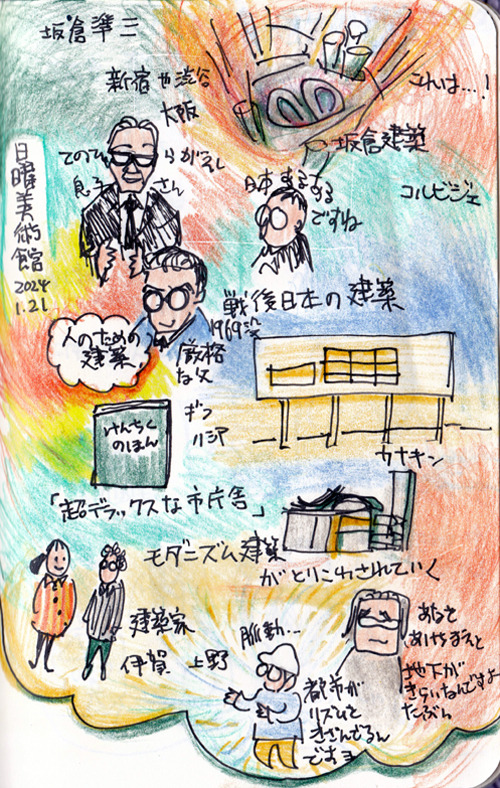 坂倉準三
新宿や渋谷
大阪
これは…!
坂倉建築
てのひらがえし
息子さん
日本すなすぎる
ですね
コルビジェ
日曜美術館
2024
1.21
戦後日本の建築
1969没
人のための
建築
厳格
な父
けんちく
のほん
ギフ
ハシマ
カナキン
「超デラックスな市庁舎」
モダニズム建築
がとりこわされていく
建築家
伊賀 上野
脈動…
都市が
リズムと
きざんでるん
ですヨ
あなを
あけちまえと
地下が
きらいなんですよ
たぶん